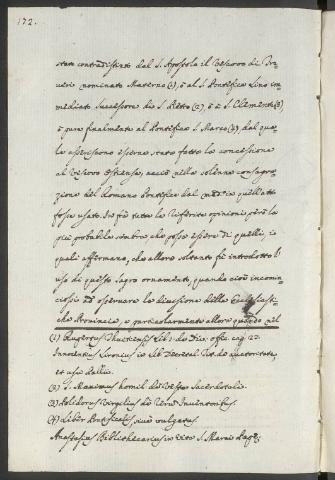 172.
stato contradistinto dal S. Apostolo il Vescovo di Tre
veri nominato Materno (1), ò al S. Pontefice Lino im
mediato successore di S. Pietro (2), ò à S. Clemente (3),
ò pure finalmente al Pontefice S. Marco (4), dal quale
asseriscono essere stata fatta la concessione
al Vescovo Ostiense, acciò nella solenne consagra
zione del Romano Pontefice dal med.mo in quell'atto
fosse usato. Frà tutte le riferite opinioni però la
più probabile sembra che possa essere di quelli, i
quali affermano, che allora soltanto fù introdotto l'
uso di questo sagro ornamento, quando cioè incomin
ciossi ad osservare la divisione delle Ecclesiasti
che Provincie, e particolarmente allora quando nel
(1) Rupertus Tuitiensis Lib. 1. de Div. offic. cap. 27.
Innocentius Cironius in Lib. Decretal. Tit. de Auctoritate,
et usu Pallii.
(2) S. Maximus homil. de Veste Sacerdotali.
(3) Polidorus Virgilius de Rerum Inventoribus.
(4) Liber Pontificalis, sive vulgatus
Anastasius Bibliothecarius in vita S. Marci Papæ.